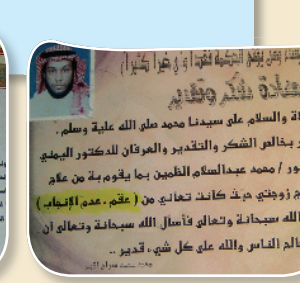 ومن يؤت الحكمة فقد أوتي خيراً كثيراً
شهادة شكر وتقدير
والسلام على سيدنا محمد صلى الله علية وسلم .
بخالص الشكر والتقدير والعرفان للدكتور اليمني
/ محمد عبدالسلام الظمين بما يقوم بة من علاج
زوجتي حيث كانت تعاني من ( عقم . عدم الإنجاب )
الله سبحانة وتعالى فأسأل الله سبحانة وتعالى أن
الناس والله على كل شيء قدير ..